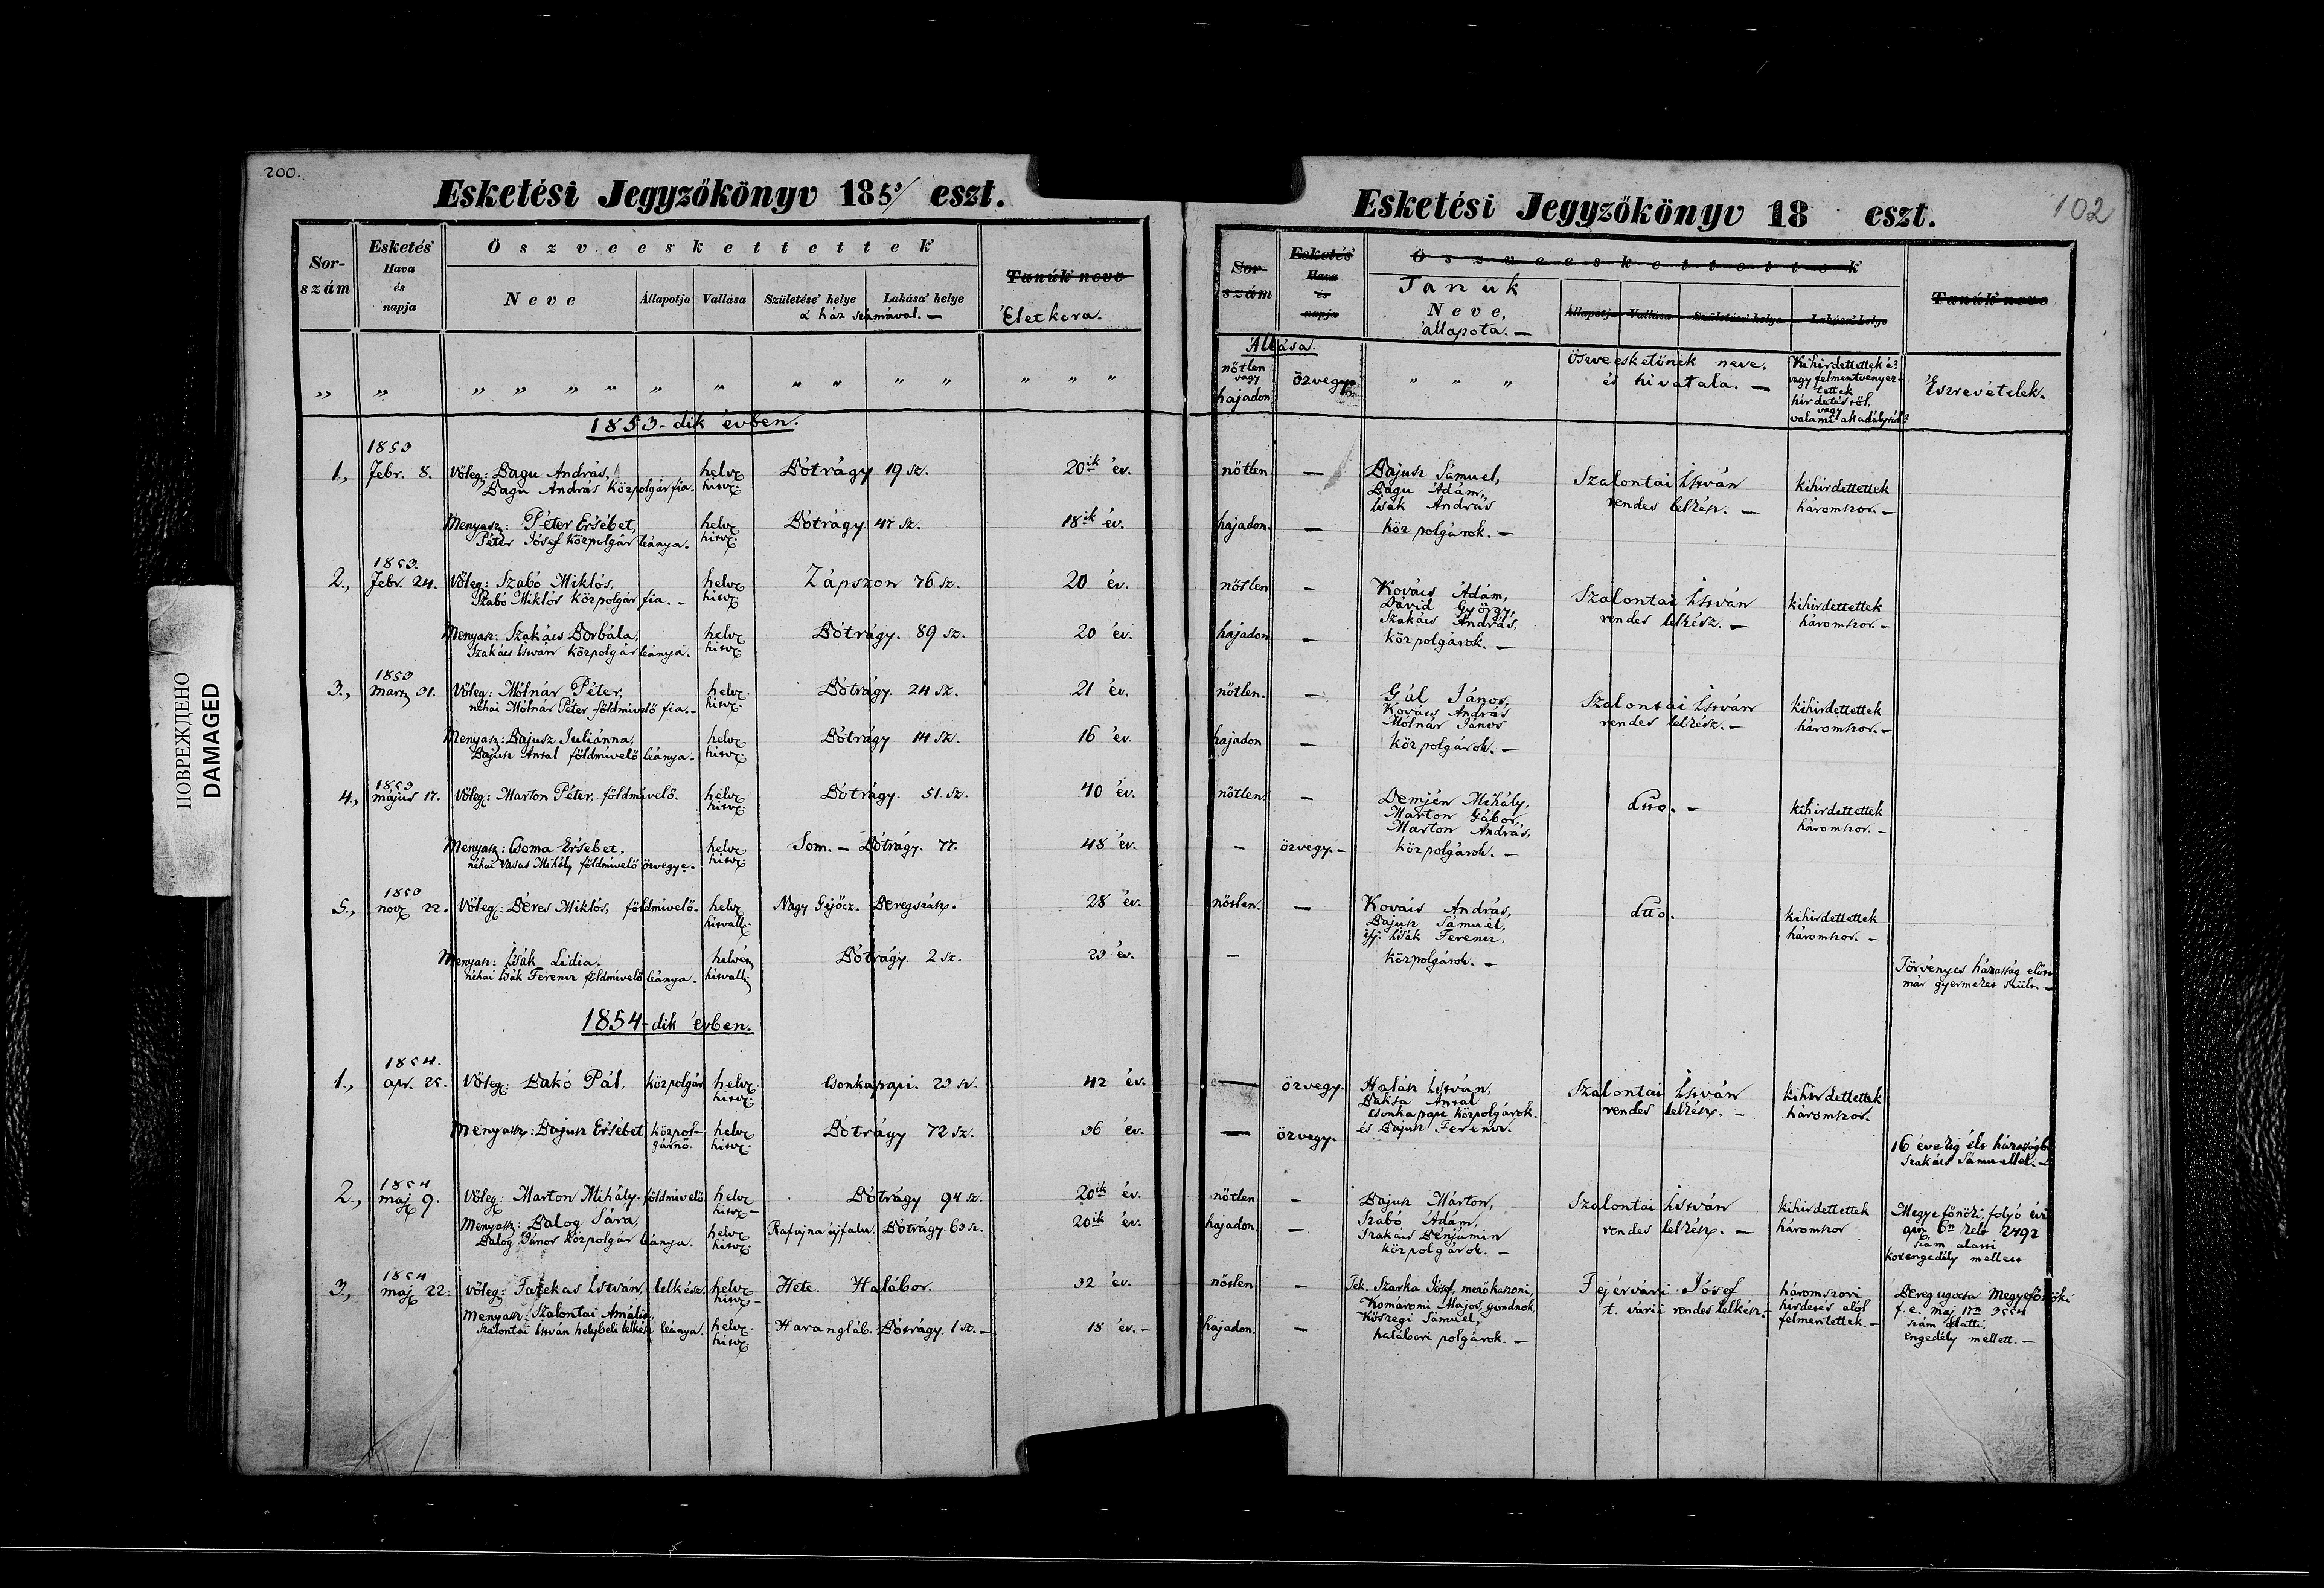 200.
Esketési Jegyzőkönyv 1853/ eszt.
Sor-
szám
Esketés'
Hava
és
napja
Öszveeskettettek
Neve
Állapotja
Vallása
Születése' helye
Lakása' helye
a' ház számával. —
Tanúk neve
Életkora.
1853-dik évben.
1853
1., Febr. 8. Vőleg: Bagu András, helv. Bótrágy 19 sz. 20ik év.
Bagu András közpolgár fia. hitv.
Menyasz: Péter Ersébet, helv. Bótrágy. 47 sz. 18ik év.
Péter Jósef közpolgár leánya. hitv.
1853.
2., Febr. 24. Vőleg: Szabó Miklós, helv. Zápszon 76 sz. 20 év.
Szabó Miklós közpolgár fia. — hitv.
Menyasz: Szakács Borbála, helv. Bótrágy. 89 sz. 20 év.
Szakács István közpolgár leánya. hitv.
1853
3., 31. Vőleg: Mólnár Péter, helv. Bótrágy. 24 sz. 21 év.
néhai Mólnár Péter földmivelő fia. — hitv.
Menyasz: Bajusz Juliánna, helv. Bótrágy 14 sz. 16 év.
Bajusz Antal földmivelő leánya. hitv.
1853
4., május 17. Vőleg: Marton Péter, földmivelő. helv. Bótrágy. 51. sz. 40 év.
hitv.
Menyasz: Csoma Ersébet, helv. Som. — Bótrágy. 77. 48 év.
néhai Vasas Mihály földmivelő özvegye. hitv.
1853
5., nov. 22. Vőleg: Béres Miklós, földmivelő. helv. Nagy Gejőcz. Beregszász. 28 év.
hitvall.
Menyasz: Isák Lidia, Bótrágy. 2 sz. 23 év.
néhai Isák Ferencz földmivelő leánya. hitvall.
1854-dik évben.
1854.
1., apr. 25. Vőleg: Bakó Pál, közpolgár helv. Csonkapapi. 23 sz. 42 év.
hitv.
Menyassz: Bajusz Ersébet közpol- helv. Bótrágy 72 sz. 36 év.
gárnő. hitv.
1854
2., maj. 9. Vőleg: Marton Mihály. földmivelő helv. Bótrágy 94 sz. 20ik év.
hitv. —
Menyassz: Balog Sára, helv. Rafajna újfalu. Bótrágy. 63 sz. 20ik év.
Balog János közpolgár leánya. hitv.
1854
3., maj. 22. vőleg: Fazekas István, lelkész. helv. Hete. Halábor. 32 év.
hitv. —
Menyasz: Szalontai Amália
Szalontai István helybeli lelkész leánya. helv. Harangláb. Bótrágy. 1 sz. — 18 év. —
hitv.
Esketési Jegyzőkönyv 18 eszt. 102
Sor-
szám
Esketés'
Hava
és
napja
Öszveeskettettek
Tanuk
Neve,
állapota. —
Állapotja Vallása Születése' helye Lakása' helye
Tanúk neve
Állása.
nőtlen
vagy
hajadon
özvegy
öszveesketőnek neve,
és hivatala. —
Kihirdettettek é?
vagy felmentvényez-
tettek
hirdetéstől,
vagy
valami akadálytól?
Észrevételek.
nőtlen — Bajusz Sámuel, Szalontai István kihirdettettek
Bagu Ádám, rendes lelkész. — háromszor. —
Isák András
hajadon. — közpolgárok. —
nőtlen — Kovács Ádám, Szalontai István kihirdettettek
Dávid György, rendes lelkész. — háromszor. —
Szakács András,
hajadon — közpolgárok. —
nőtlen. — Gál János, Szalontai István kihirdettettek
Kovács András rendes lelkész. — háromszor. —
Mólnár János
hajadon — közpolgárok. —
nőtlen. — Demjén Mihály, dtto. — kihirdettettek
Marton Gábor, háromszor. —
Marton András,
— özvegy. — közpolgárok. —
nőtlen. — Kovács András, dtto. kihirdettettek
Bajusz Sámuel, háromszor. —
ifj. Isák Ferencz,
— közpolgárok. —
Törvényes házasság előtt
már gyermeket szült. —
— özvegy. Halász István, Szalontai István kihirdettettek
Baksa Antal rendes lelkész. — háromszor.
Csonkapapi közpolgárok.
— özvegy. és Bajusz Ferencz.
16 évekig élt házasságba
Szakács Sámuellel. —
nőtlen — Bajusz Márton, Szalontai István kihirdettettek Megyefőnöki folyó évi
hajadon. — Szabó Ádám, rendes lelkész. — háromszor apr. 6n kelt 2492
Szakács Bénjámin szám alatti
közpolgárok. — engedély mellett
nőtlen — Tek. Szarka Jósef, Fejérvári Jósef háromszori Bereg ugocsa Megyefőnöki
Komáromi Májos, gondnok t. várii rendes lelkész. — hirdetés alól f. e. maj.
Kőszegi Sámuel, felmentettek. — szám alatti,
hajadon. — halábori polgárok. — engedély mellett. —
ПОВРЕЖДЕНО
DAMAGED